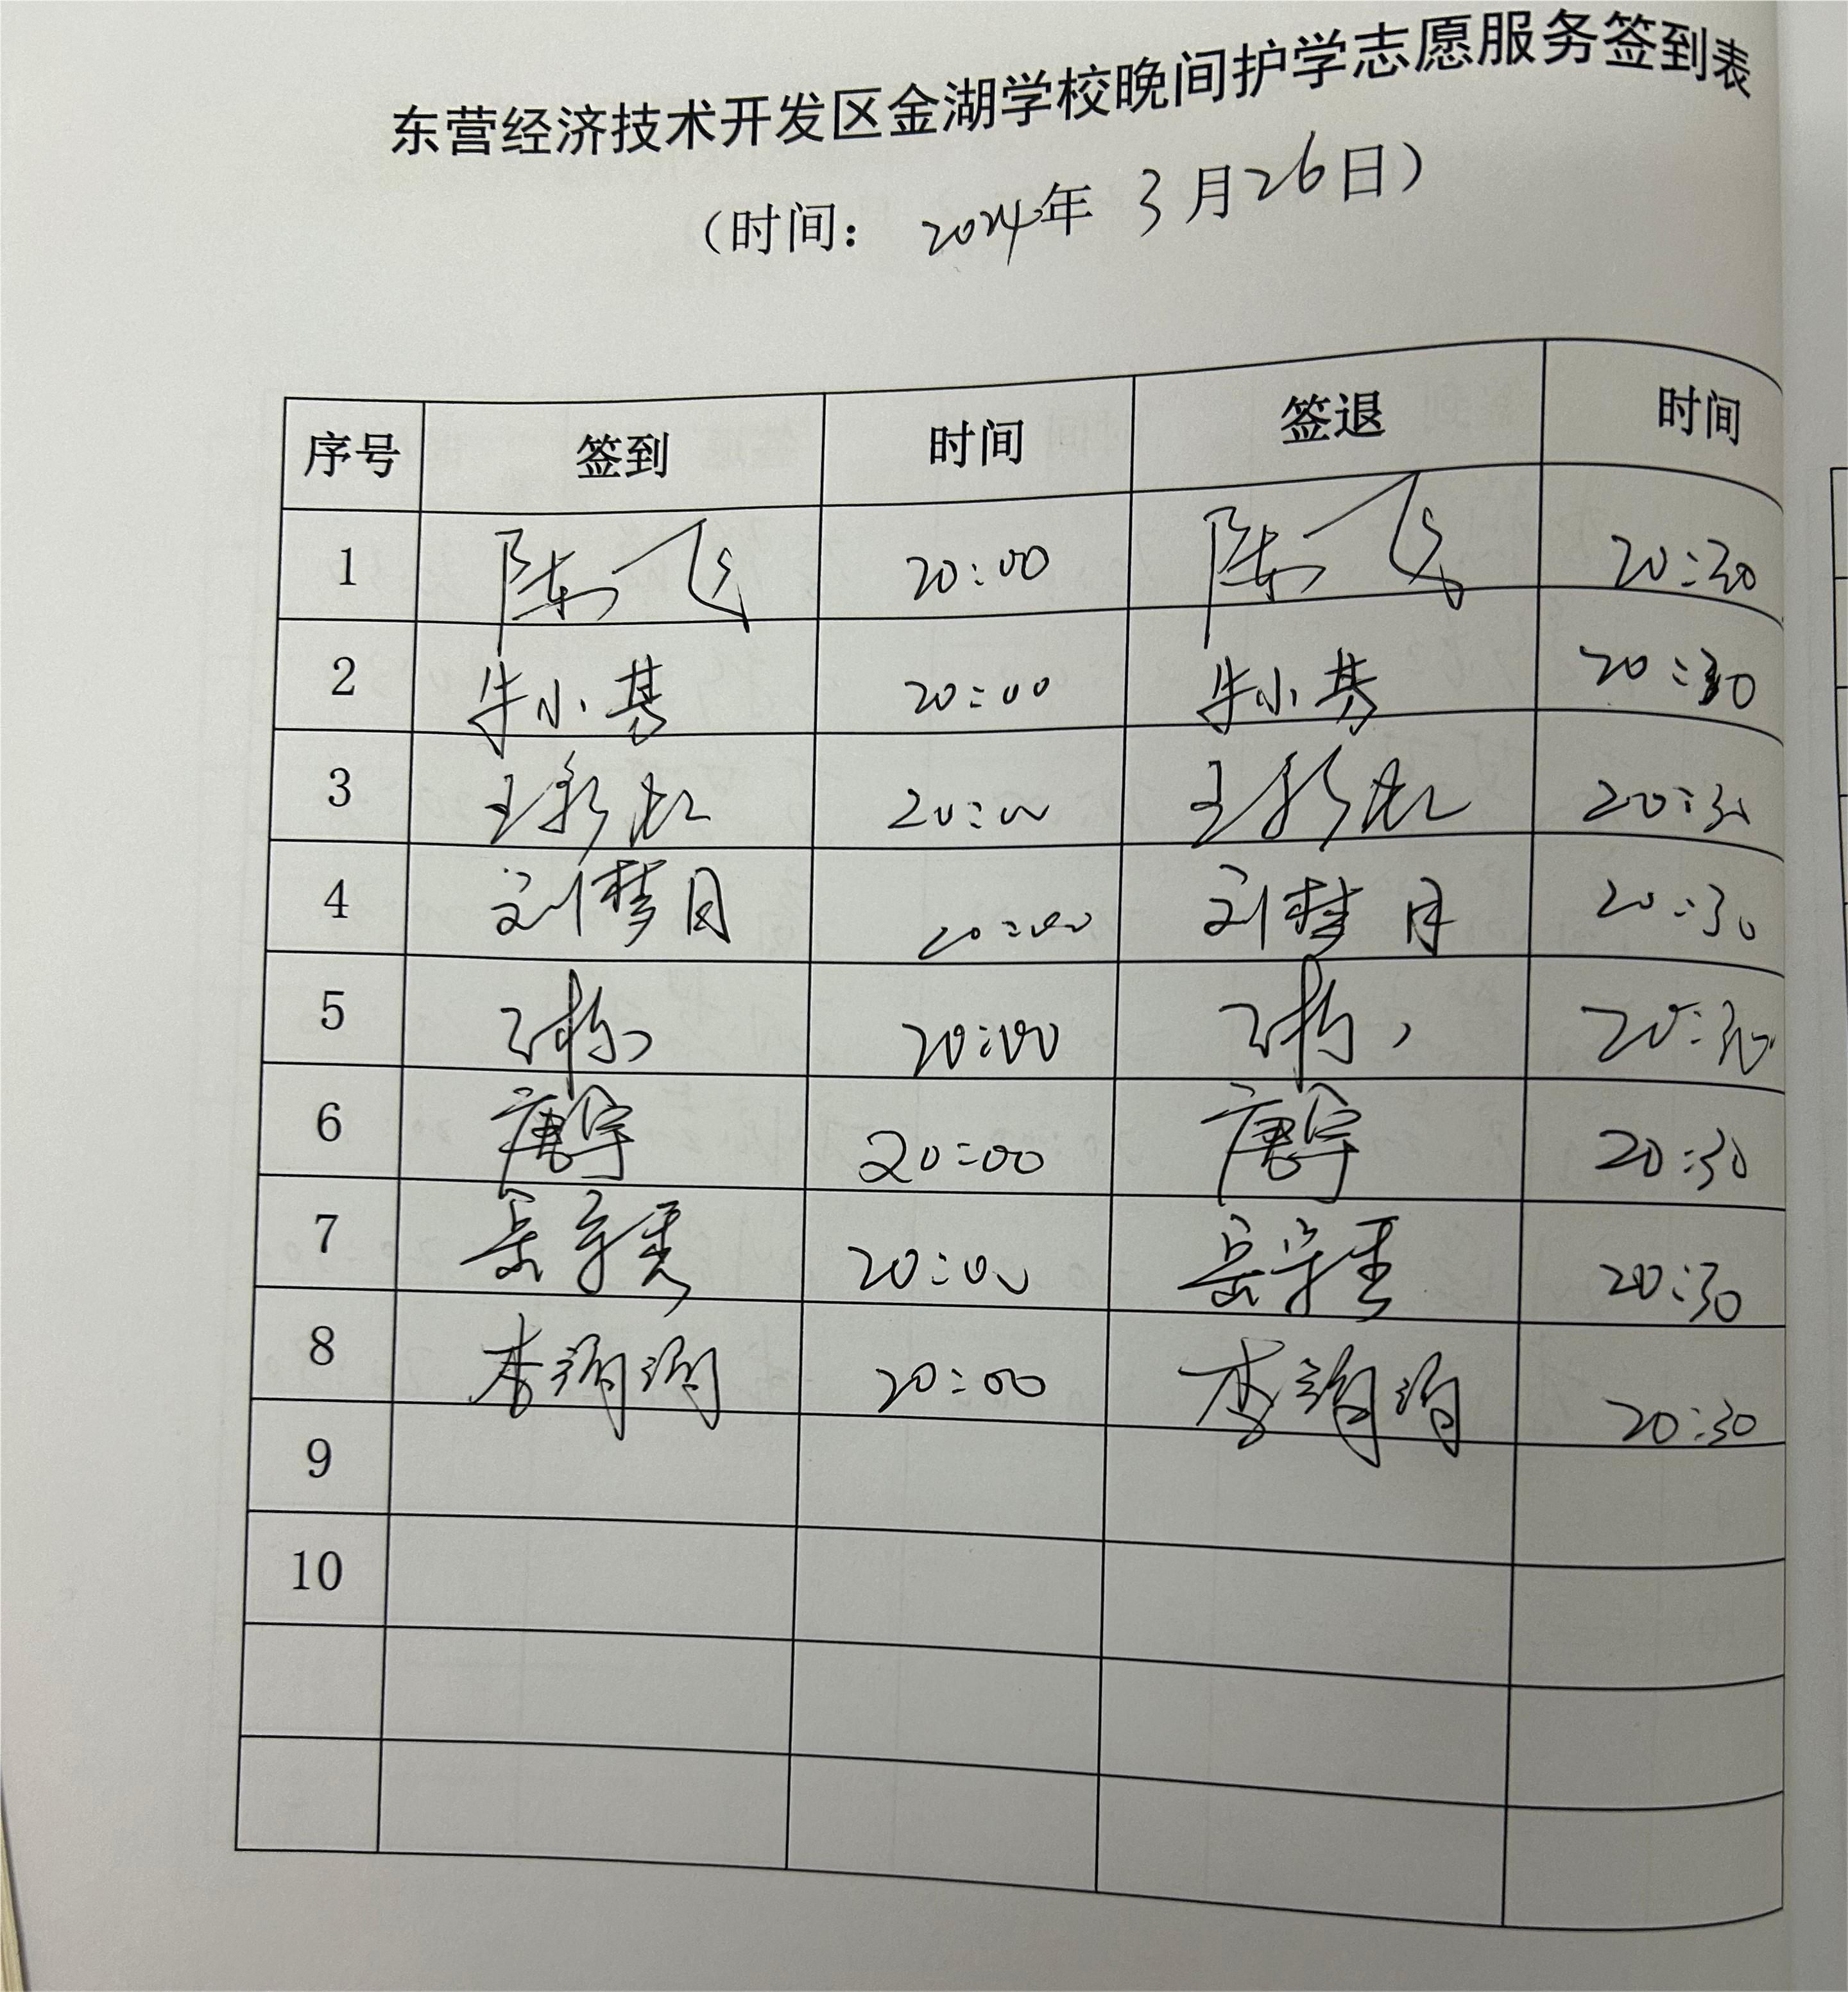 东营经济技术开发区金湖学校晚间护学志愿服务签到表
（时间： 2024年 3月26日）
序号 签到 时间 签退 时间
1 陈飞 20:00 陈飞 20:30
2 牛小其 20:00 牛小其 20:30
3 王彩虹 20:00 王彩虹 20:30
4 刘梦月 20:00 刘梦月 20:30
5 20:00 20:30
6 唐宇 20:00 唐宇 20:30
7 20:00 20:30
8 李 20:00 李 20:30
9
10